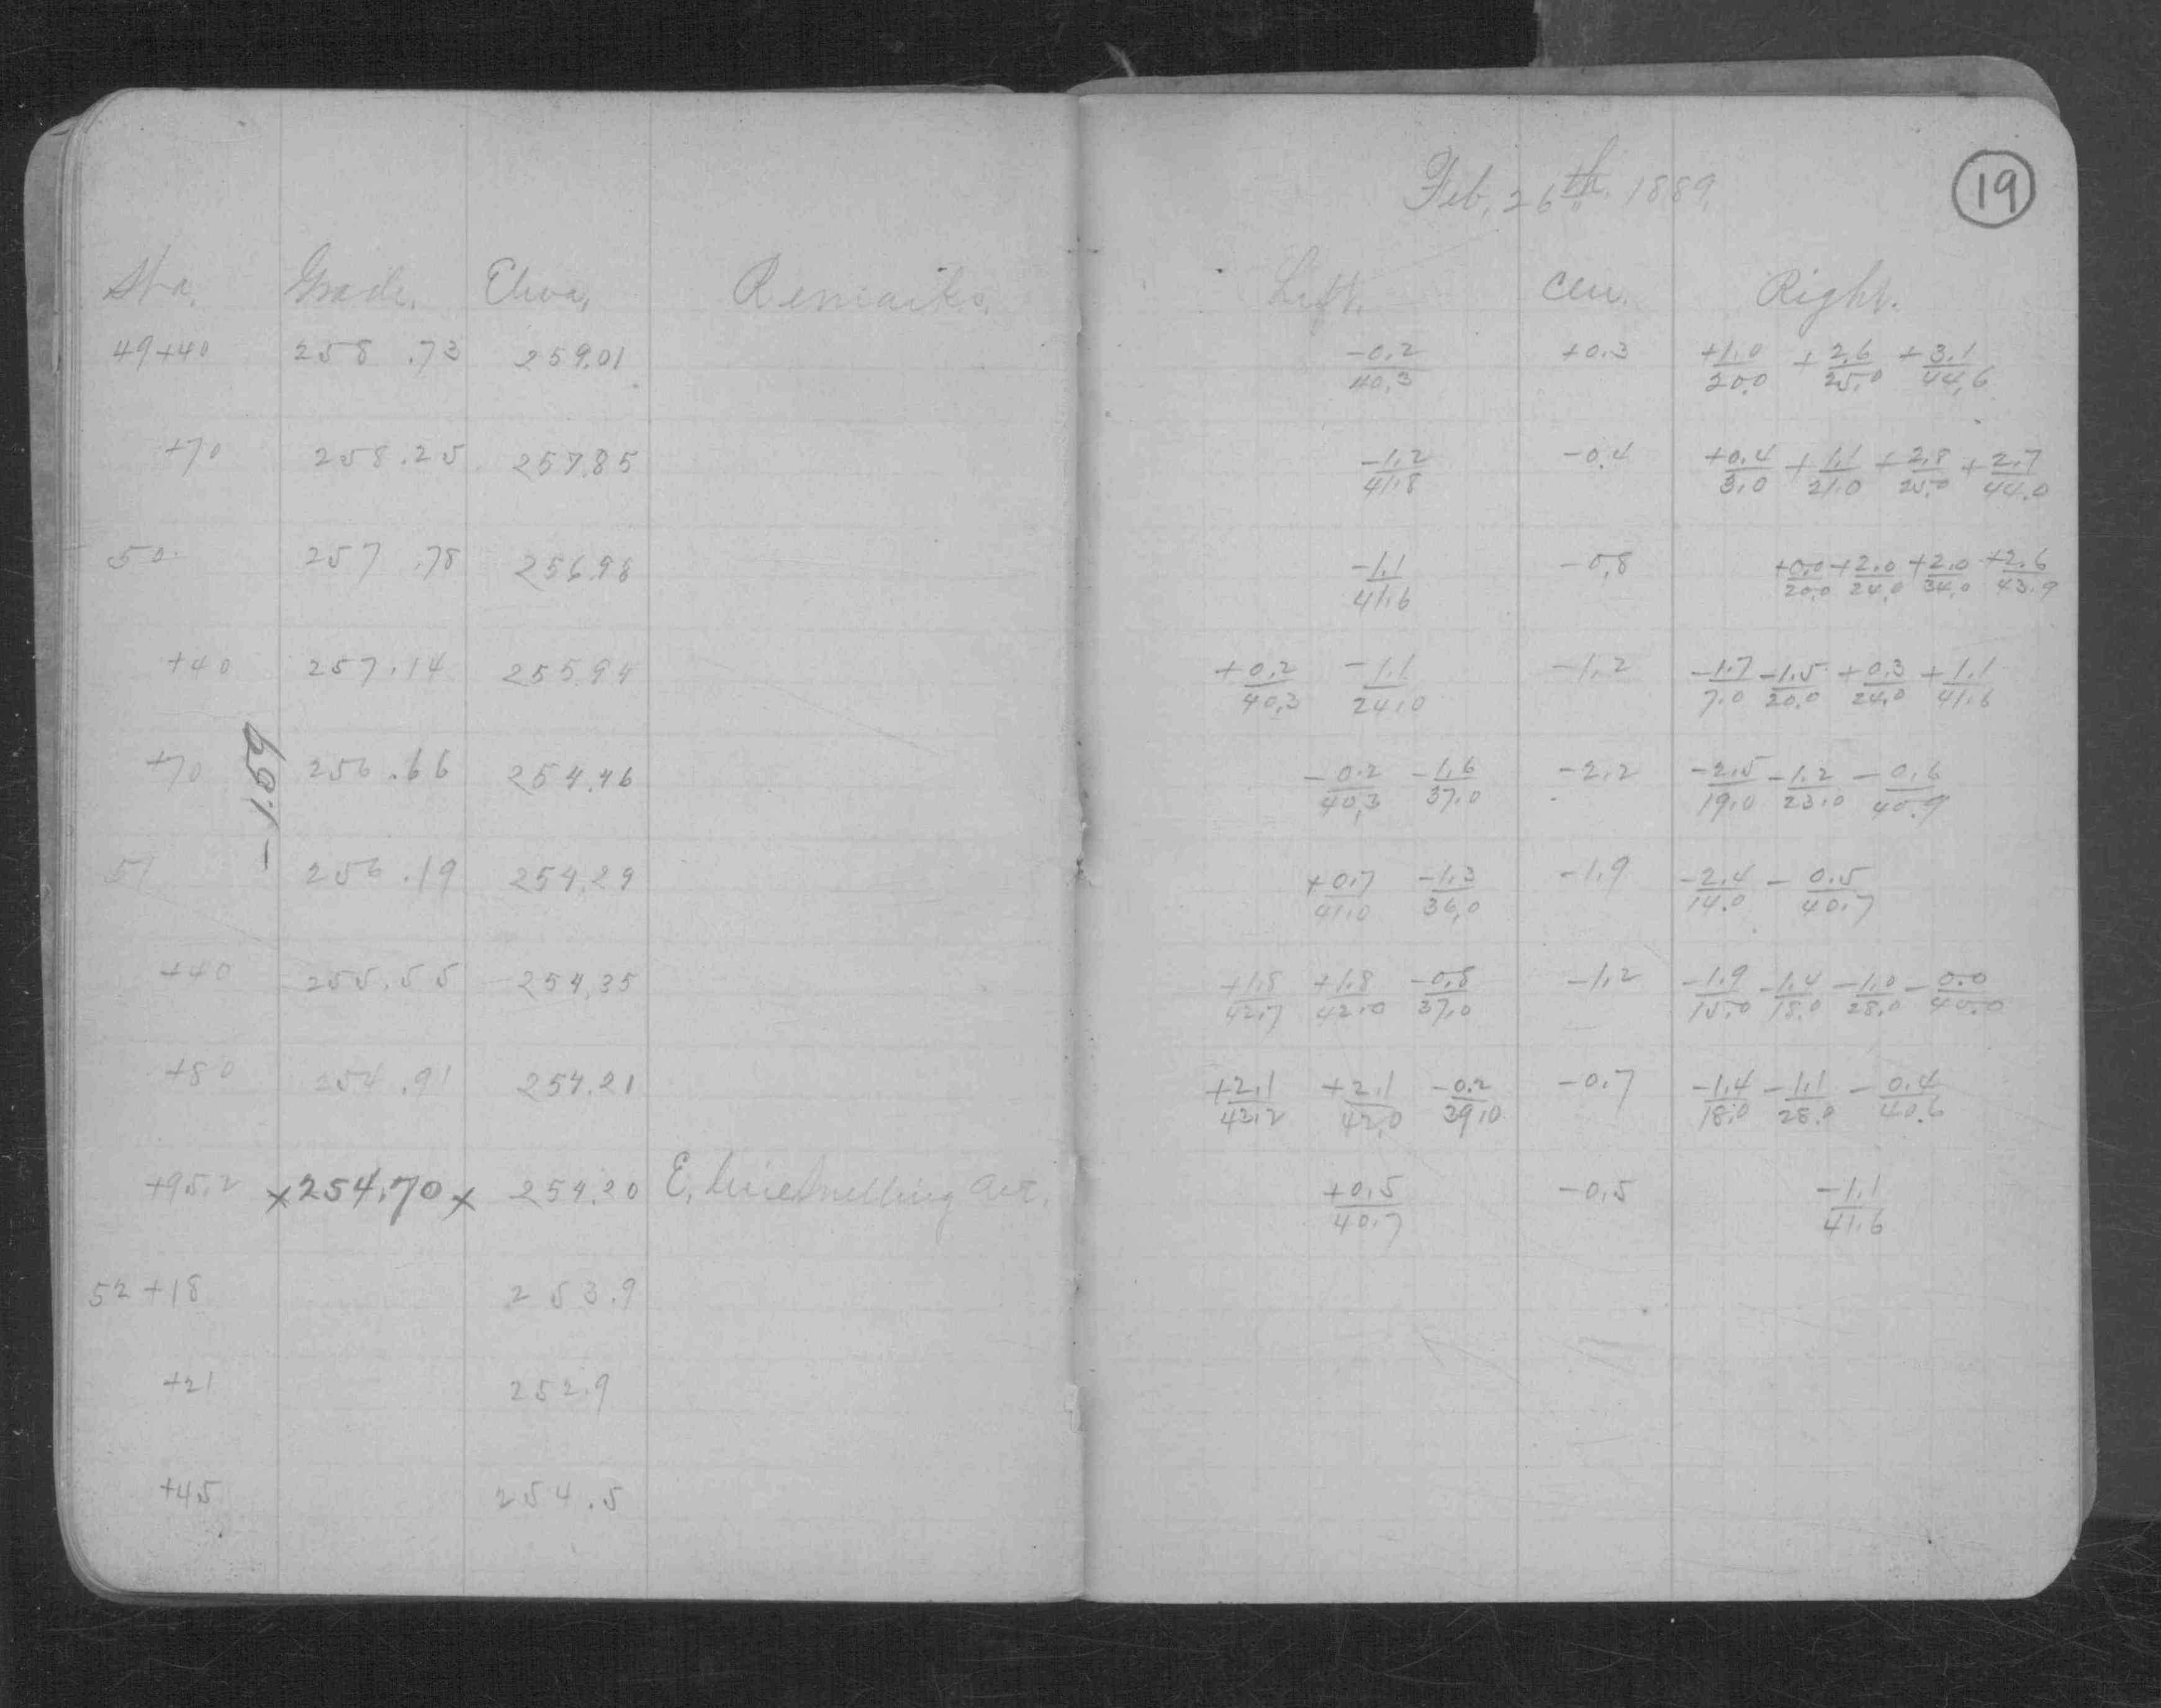 Feb. 26th. 1889.
19
Sta. Grade. Eleva. Remarks. Left. Cen. Right.
49+40 258.73 259.01 -0.2/40.3 +0.3 +1.0/20.0 +2.6/25.0 +3.1/44.6
+70 258.25 257.85 -1.2/41.8 -0.4 +0.4/3.0 +1.1/21.0 +2.8/25.0 +2.7/44.0
50 257.78 256.98 -1.1/41.6 -0.8 +0.0/20.0 +2.0/24.0 +2.0/34.0 +2.6/43.9
+40 257.14 255.94 +0.2/40.3 -1.1/24.0 -1.2 -1.7/7.0 -1.5/20.0 +0.3/24.0 +1.1/41.6
+70 256.66 254.46 -0.2/40.3 -1.6/37.0 -2.2 -2.5/19.0 -1.2/23.0 -0.6/40.9
-1.59
51 256.19 254.29 +0.7/41.0 -1.3/36.0 -1.9 -2.4/14.0 -0.5/40.7
+40 255.55 254.35 +1.8/42.7 +1.8/42.0 -0.8/37.0 -1.2 -1.9/15.0 -1.4/18.0 -1.0/28.0 -0.0/40.0
+80 254.91 254.21 +2.1/43.2 +2.1/42.0 -0.2/39.0 -0.7 -1.4/18.0 -1.1/28.0 -0.4/40.6
+95.2 x254.70x 254.20 E. line Snelling ave. +0.5/40.7 -0.5 -1.1/41.6
52+18 253.9
+21 252.9
+45 254.5